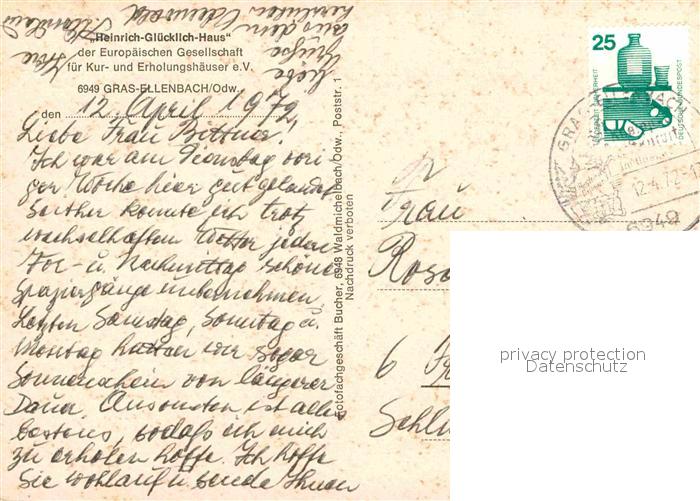 „Heinrich-Glücklich-Haus"
der Europäischen Gesellschaft
für Kur- und Erholungshäuser e.V.
6949 GRAS-ELLENBACH/Odw.
den 12. April 1972
Liebe Frau Bittner!
Ich war am Dienstag vori-
ger Woche hier gut gelandet.
Seither konnte ich trotz
wechselhaftem Wetter jeden
Vor- u. Nachmittag schöne
Spaziergänge unternehmen.
Letzten Samstag, Sonntag u.
Montag hatten wir sogar
Sonnenschein von längerer
Dauer. Ansonsten ist alles
bestens, sodaß ich mich
zu erholen hoffe. Ich hoffe
Sie wohlauf u. sende Ihnen
liebe Grüße
aus dem
herrlichen Odenwald
Ihre
Fotofachgeschäft Bucher, 6948 Waldmichelbach/Odw., Poststr. 1
Nachdruck verboten
25
DEUTSCHE BUNDESPOST
12.4.72
6949
Frau
6
privacy protection
Datenschutz